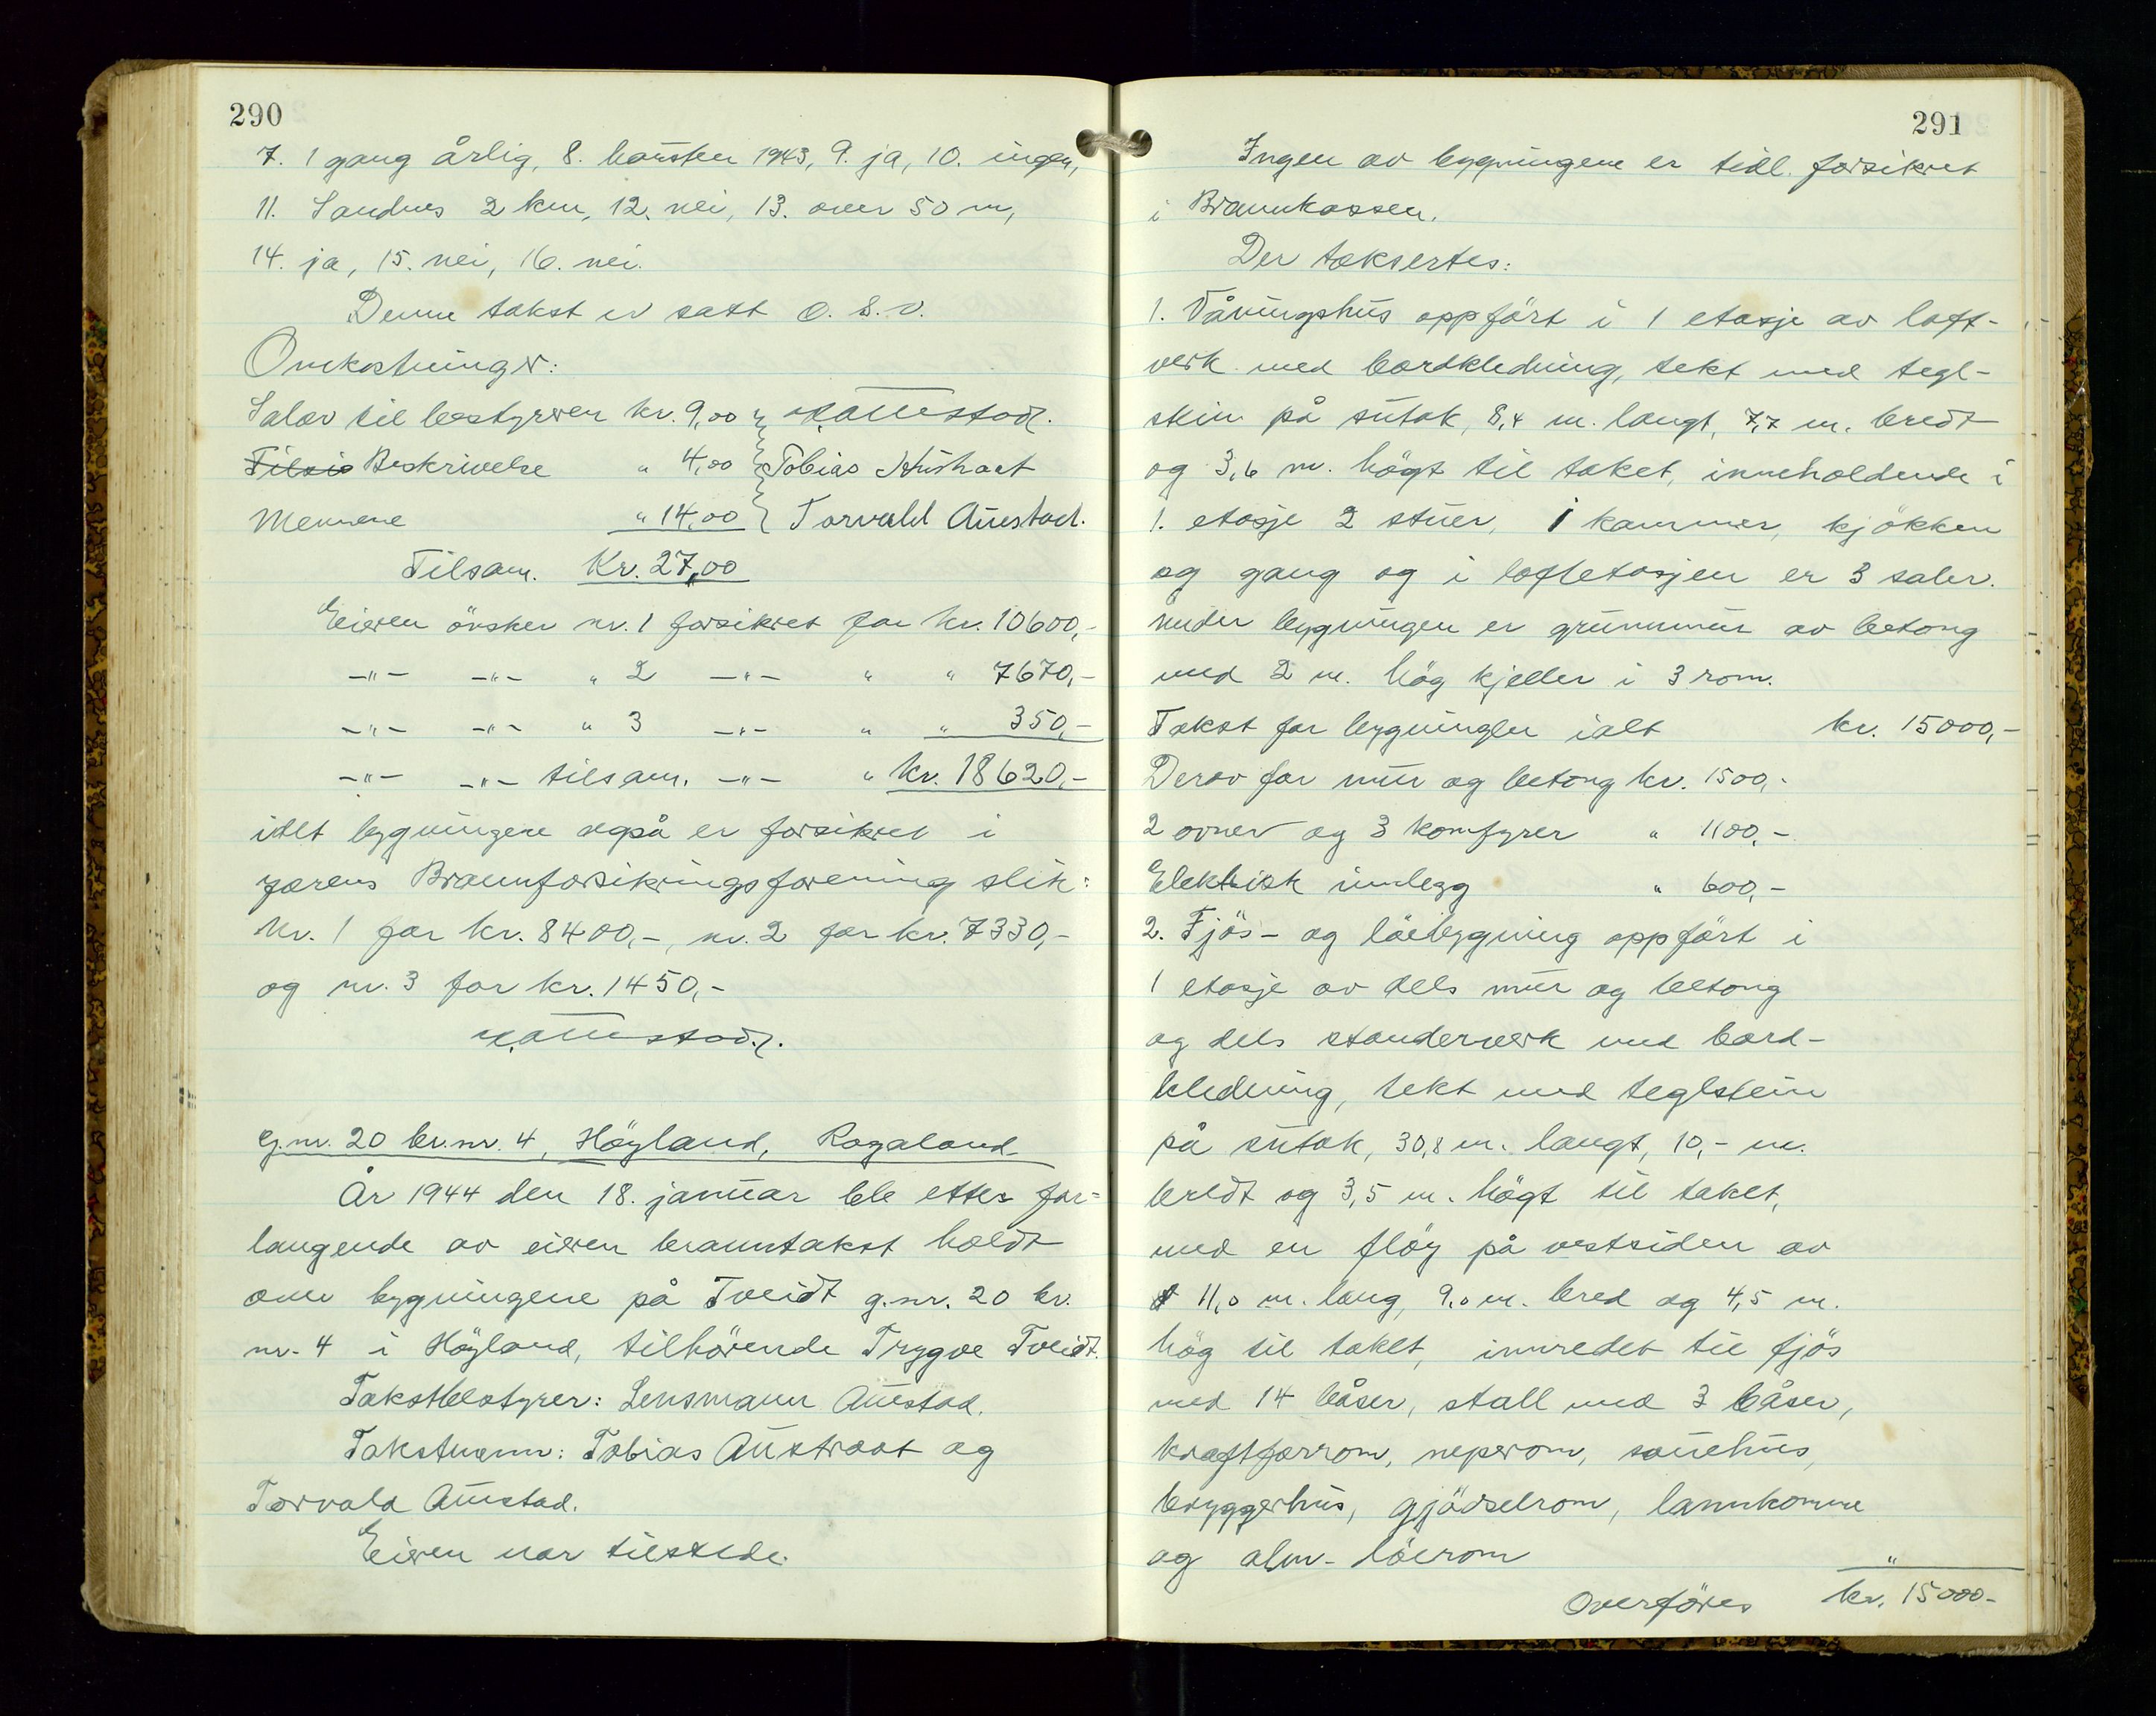 290
7. 1 gang årlig, 8. høsten 1943, 9. ja, 10. ingen,
11. Sandnes 2 km, 12. nei, 13. over 50 m,
14. ja, 15. nei, 16. nei.
Denne takst er satt o.s.v.
Omkostninger:
Salær til bestyreren kr. 9,00 Aūestad.
Tilsio Beskrivelse " 4,00 Tobias
Mennene " 14,00 Torvald Aūestad.
Tilsam. Kr. 27,00
Eieren önsker nr. 1 forsikret for kr. 10600,-
-"- -"- " 2 -"- " " 7670,-
-"- -"- " 3 -"- " " 350,-
-"- -"- tilsam. -"- " kr. 18620,-
idet bygningene også er forsikret i
Jærens Brannforsikringsforening slik:
Nr. 1 for kr. 8400,-, nr. 2 for kr. 7330,-
og nr. 3 for kr. 1450,-
Aūestad.
G.nr. 20 br.nr. 4, Höyland, Rogaland
År 1944 den 18. janūar ble etter for-
langende av eieren branntakst holdt
over bygningene på Tveidt g.nr. 20 br.
nr. 4 i Höyland, tilhörende Trygve Tveidt.
Takstbestyrer: Lensmann Aūestad.
Takstmenn: Tobias Aūstraat og
Torvald Aūestad.
Eieren var tilstede.
291
Ingen av bygningene er tidl. forsikret
i Brannkassen.
Der taksertes:
1. Våningshūs oppfört i 1 etasje av loft-
verk med bordkledning, tekt med tegl-
stein på sūtak, 8,4 m. langt, 7,7 m. bredt
og 3,6 m. högt til taket, inneholdende i
1. etasje 2 stūer, 1 kammer, kjökken
og gang og i loftetasjen er 3 saler.
Under bygningen er grūnnmūr av betong
med 2 m. hög kjeller i 3 rom.
Takst for bygningen ialt kr. 15000,-
Derav for mūr og betong kr. 1500,-
2 ovner og 3 komfyrer " 1100,-
Elektrisk innlegg " 600,-
2. Fjös- og löebygning oppfört i
1 etasje av dels mūr og betong
og dels standerverk med bord-
kledning, tekt med teglstein
på sūtak, 30,8 m. langt, 10,- m.
bredt og 3,5 m. högt til taket,
med en flöy på vestsiden av
11,0 m. lang, 9,0 m. bred og 4,5 m.
hög til taket, innredet til fjös
med 14 båser, stall med 3 båser,
kraftforrom, neperom, saūehūs,
bryggerhūs, gjödselrom, lannkomme
og alm. löerom "
Overföres kr. 15000-